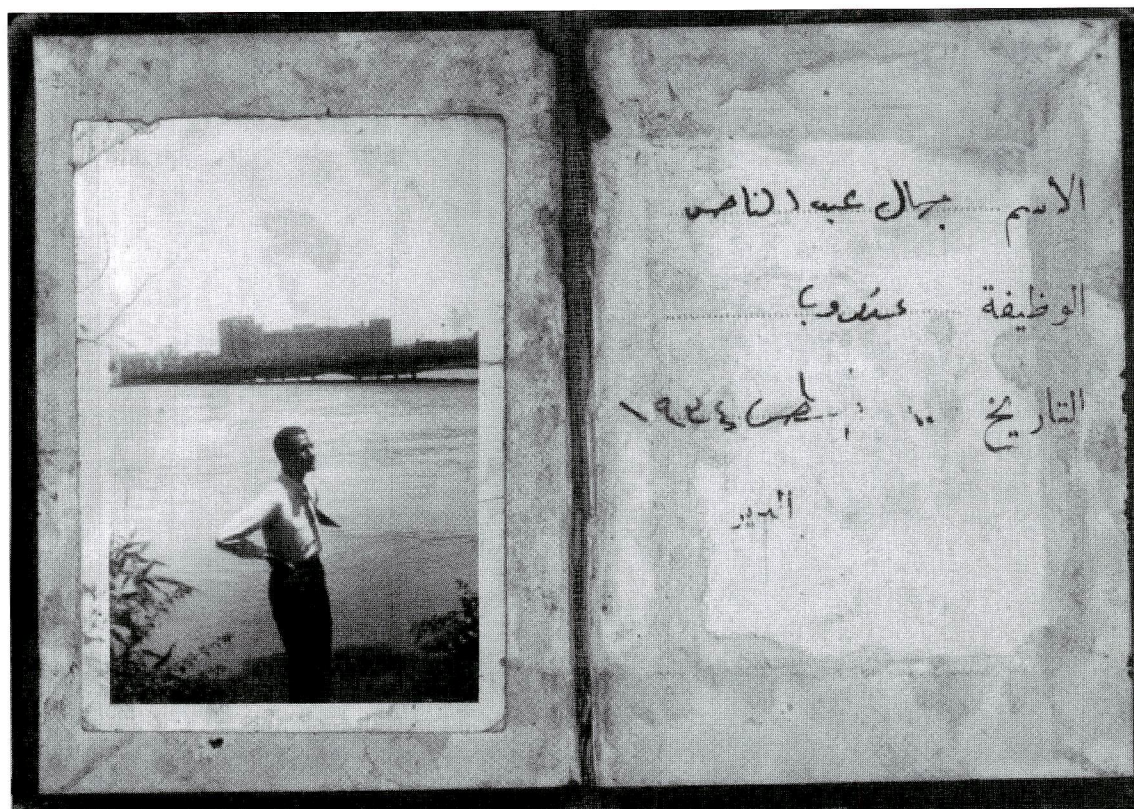 الاسم جمال عبد الناصر
الوظيفة مندوب
التاريخ ١٠ اغسطس ١٩٣٤
المدير